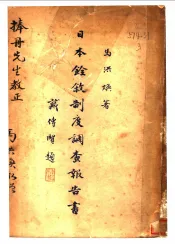 馬洪煥著
日本銓敘制度調查報告書
戴傳賢題
捧丹先生教正
馬洪煥敬贈